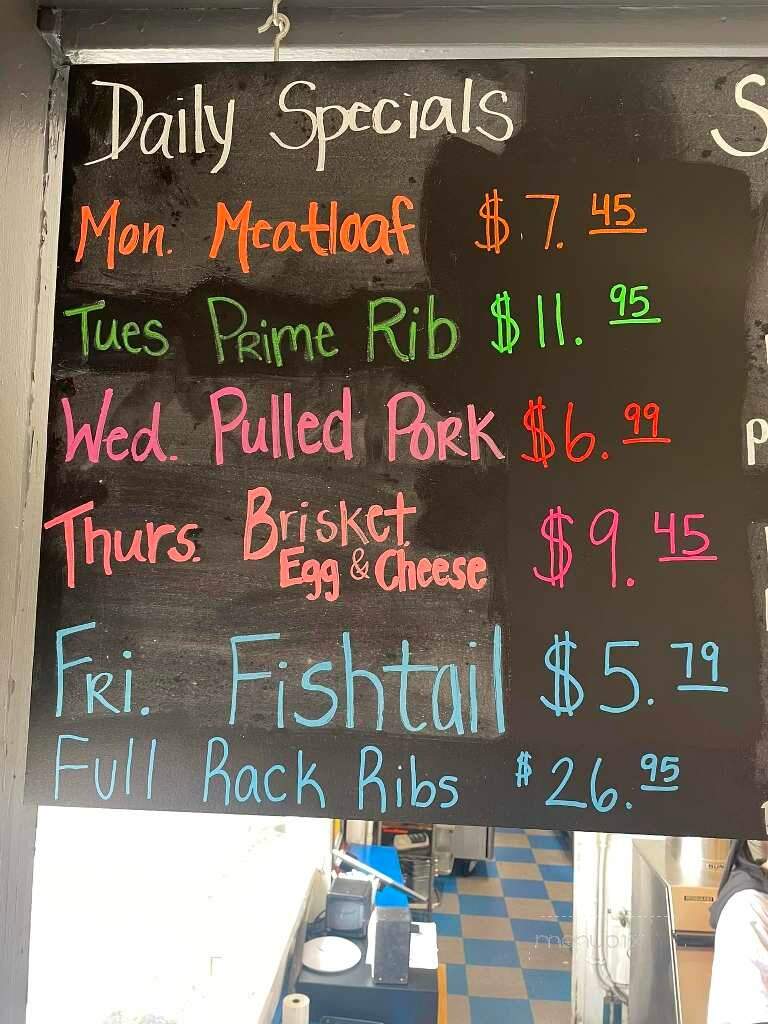 Daily Specials
Mon. Meatloaf $.7.45
Tues Prime Rib $11.95
Wed. Pulled Pork $6.99
Thurs. Brisket $9.45
Egg & Cheese
Fri. Fishtail $5.79
Full Rack Ribs $26.95
menupix